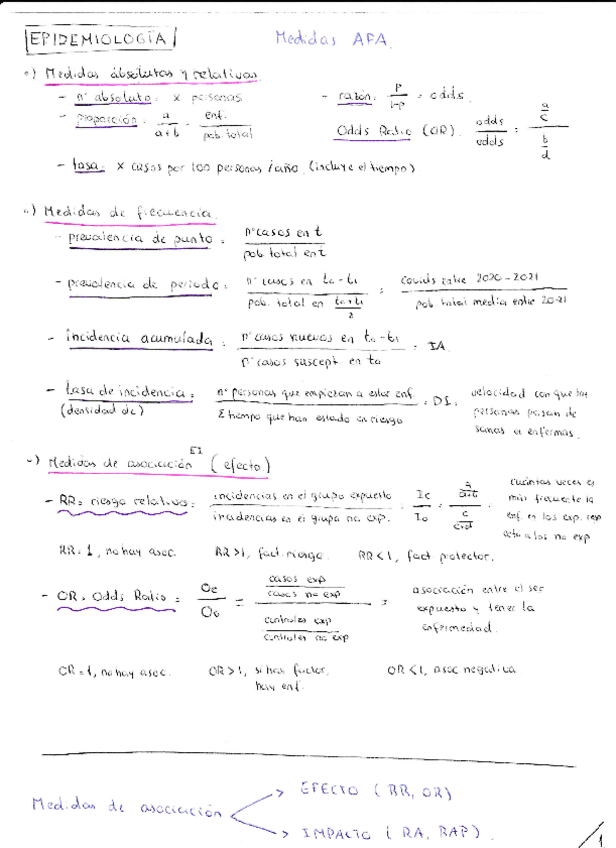 EPIDEMIOLOGÍA
Medidas AFA.
Medidas absolutas y relativas
- nº absoluto: x personas
- razón: p / 1-p = odds.
- proporción: a / a+b = enf. / pob. total
Odds Ratio (OR): odds / odds = a/c / b/d
- tasa: x casos por 100 personas/año. (incluye el tiempo)
Medidas de frecuencia.
- prevalencia de punto: nº casos en t / pob. total en t
- prevalencia de periodo: nº casos en t0 - t1 / pob. total en t0+t1/2 = covids entre 2020-2021 / pob. total media entre 20-21
- incidencia acumulada: nº casos nuevos en t0 - t1 / nº casos suscept en t0 = IA.
- tasa de incidencia: nº personas que empiezan a estar enf. / Σ tiempo que han estado en riesgo = DI.
(densidad de)
velocidad con que las
personas pasan de
sanas a enfermas.
Medidas de asociación (efecto)
- RR: riesgo relativo: incidencias en el grupo expuesto / incidencias en el grupo no exp. = Ie / Io = a/a+b / c/c+d
cuántas veces es
más frecuente la
enf. en los exp. resp
ecto a los no exp
RR=1, no hay asoc. RR>1, fact. riesgo. RR<1, fact protector.
- OR: Odds Ratio = Oe / Oo = casos exp / casos no exp / controles exp / controles no exp =
asociación entre el ser
expuesto y tener la
enfermedad.
OR=1, no hay asoc. OR>1, si hay factor, OR<1, asoc negativa
hay enf.
Medidas de asociación
EFECTO (RR, OR)
IMPACTO (RA, RAP).
1